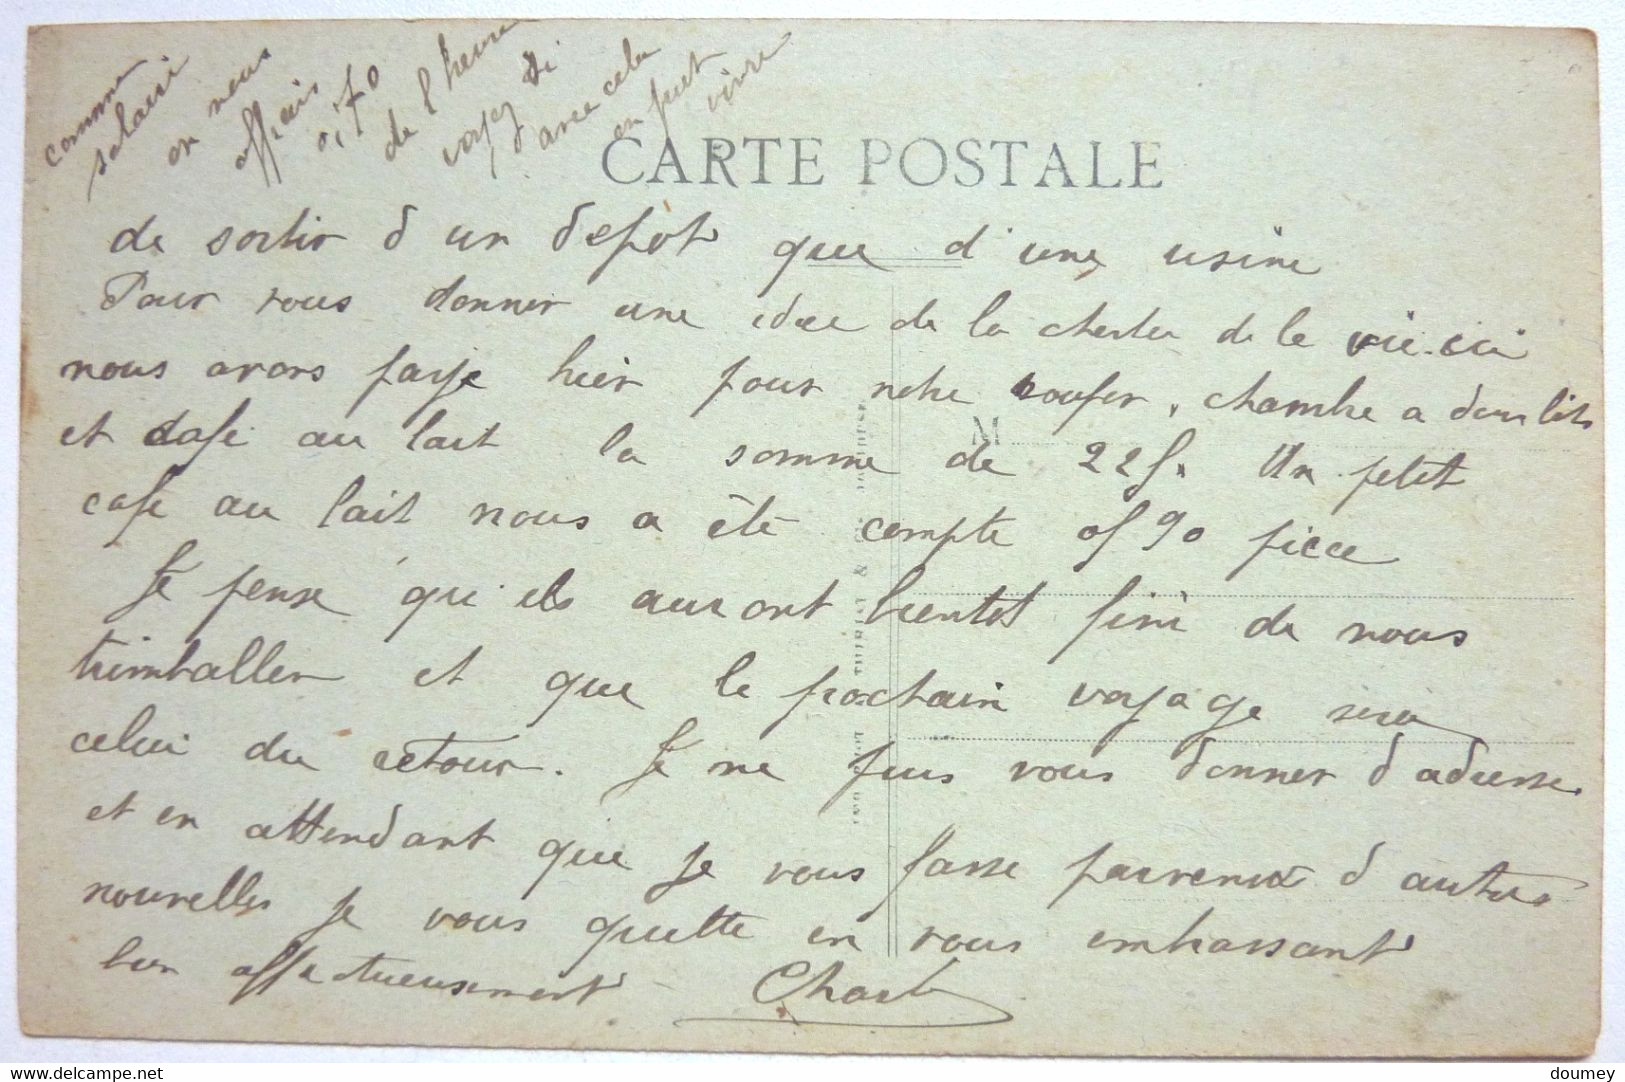 comme
salaire
on nous
offrais
0,70
de l heure
voyez si
avec cela
on peut
vivre
CARTE POSTALE
de sortir d un depot que d'une usine
Pour vous donner une idee de la cherter de la vie ici
nous avons paye hier pour notre souper, chambre a deux lits
et cafe au lait la somme de 22f. Un petit
cafe au lait nous a été compte 0f90 piece
Je pense qu ils auront bientot fini de nous
trimballer et que le prochain voyage sera
celui du retour. Je ne puis vous donner d adresse.
et en attendant que je vous fasse parvenir d autres
nouvelles je vous quitte en vous embrassant
bien affectueusement
M
delcampe.net
doumey